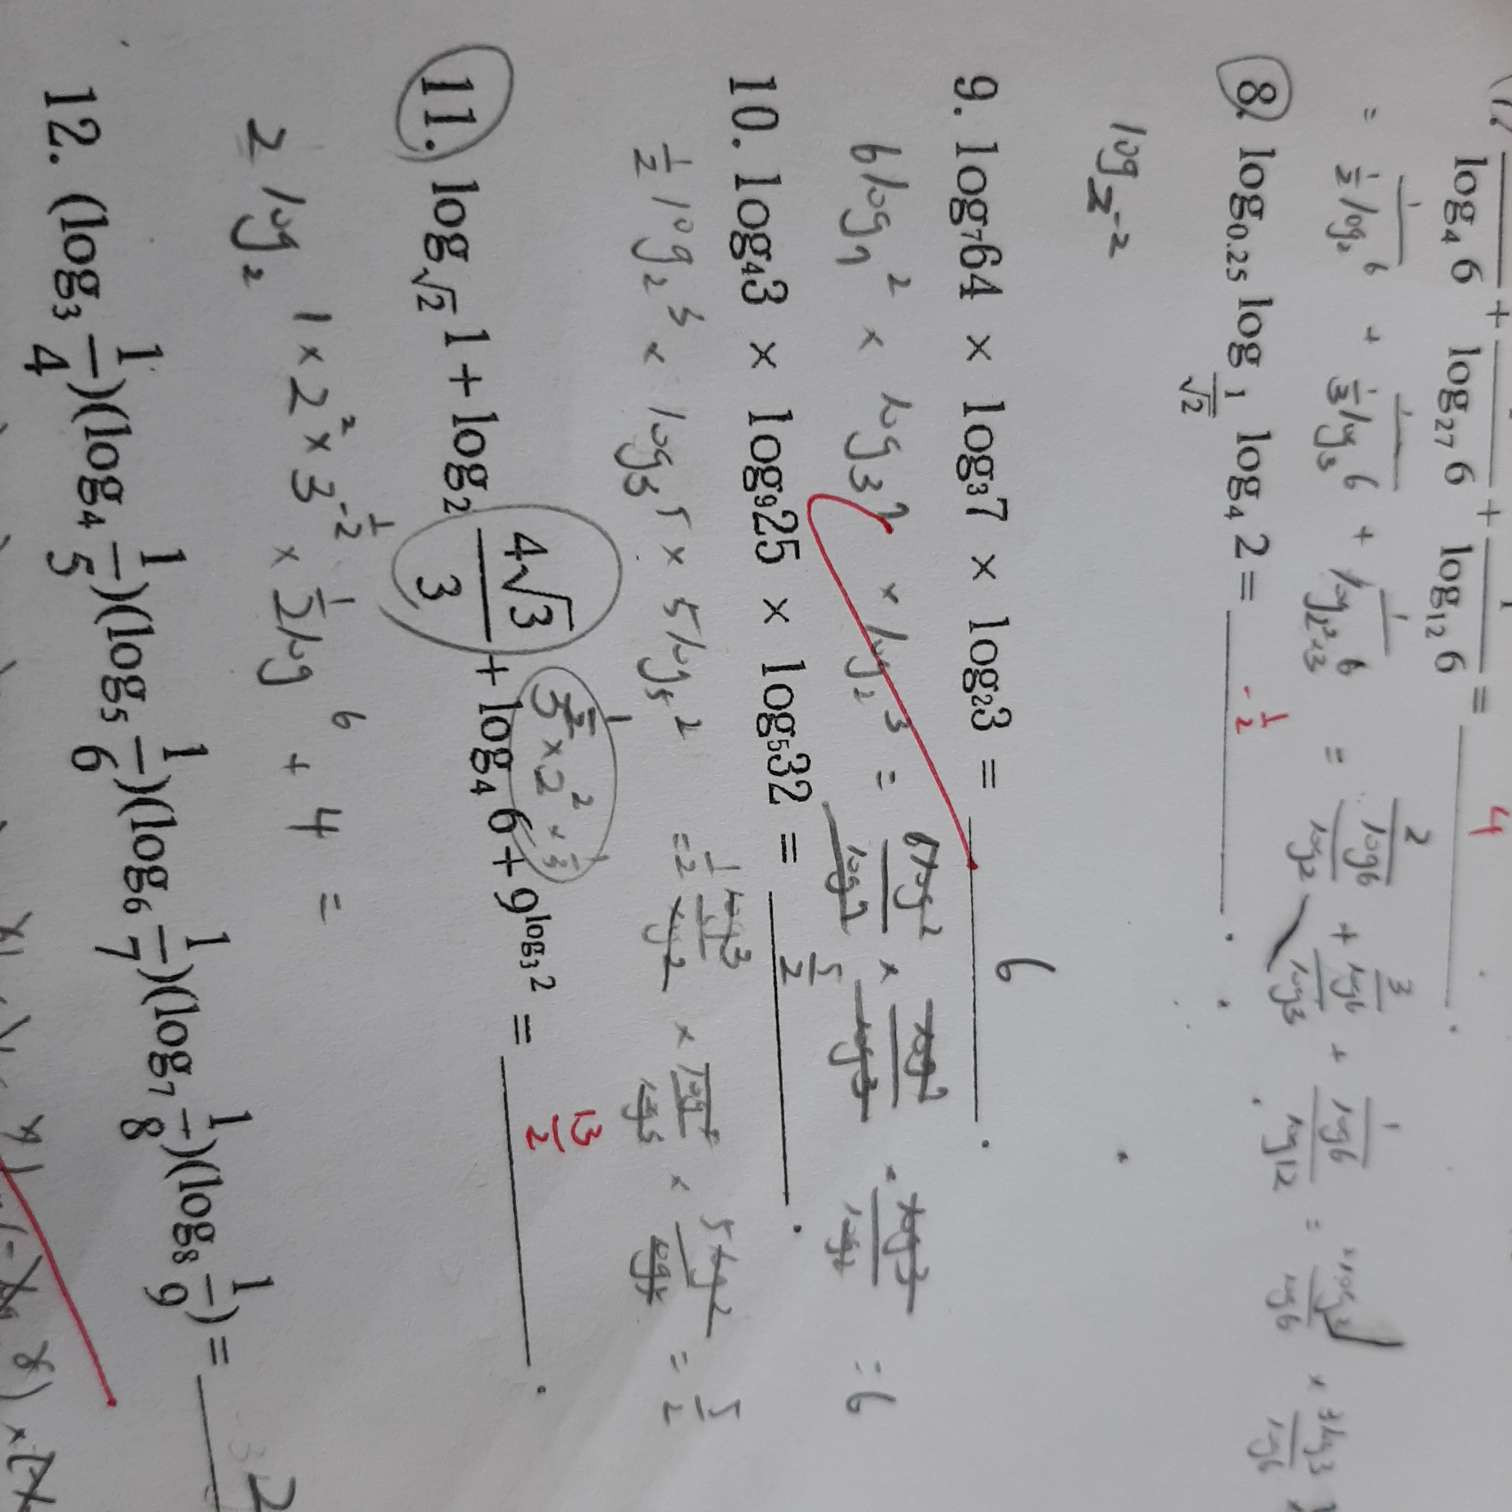 1/(log₄ 6) + 1/(log₂₇ 6) + 1/(log₁₂ 6) = 4 .
= 1/(1/2 log₂ 6) + 1/(1/3 log₃ 6) + 1/(log₂²ₓ₃ 6) = 2/(log6/log2) + 3/(log6/log3) + 1/(log6/log12) =
8. log₀.₂₅ log_(1/√2) log₄ 2 = -1/2 .
log 2⁻²
9. log₇64 × log₃7 × log₂3 = 6 .
6log₇2 × log₃7 × log₂3 = 6log2/log7 × log7/log3 × log3/log2 = 6
10. log₄3 × log₉25 × log₅32 = 5/2 .
1/2 log₂3 × log₃5 × 5log₅2 = 1/2 log3/log2 × log5/log3 × 5log2/log5 = 5/2
11. log_√2 1 + log₂ (4√3)/3 + log₄ 6 + 9^(log₃2) = 13/2 .
3^(1/2) × 2² × 1/3
2 log₂ 1 × 2² × 3^(-1/2) × 1/2 log 6 + 4 =
12. (log₃ 1/4)(log₄ 1/5)(log₅ 1/6)(log₆ 1/7)(log₇ 1/8)(log₈ 1/9) = 2